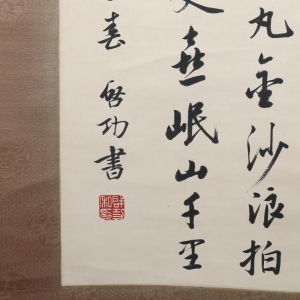 丸金沙浪拍
喜岷山千里
春 啓功書